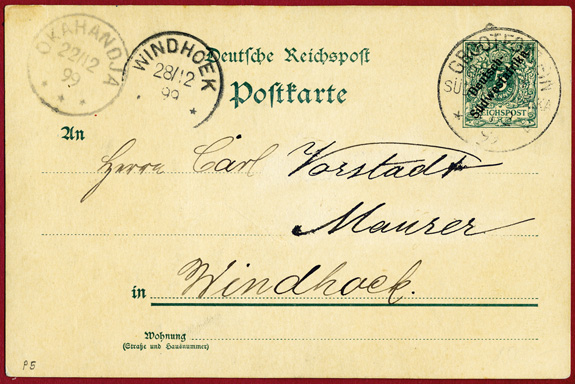 OKAHANDJA
22/12
99
WINDHOEK
28/12
99
Deutsche Reichspost
Postkarte
GROOTFONTEIN
Deutsch-
Südwestafrika
REICHSPOST
An Herrn Carl Vorstadt
Maurer
in Windhoek.
Wohnung
(Straße und Hausnummer)
P5